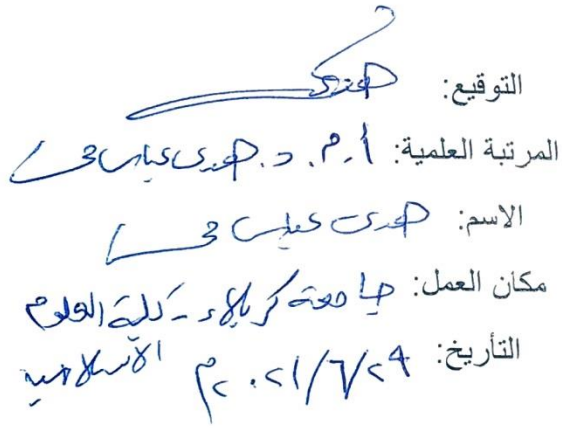 التوقيع: هدى
المرتبة العلمية: أ.م.د. هدى عباس محمد
الاسم: هدى عباس محمد
مكان العمل: جامعة كربلاء - كلية العلوم
الاسلامية
التأريخ: ٢٠٢١/٦/٢٩م